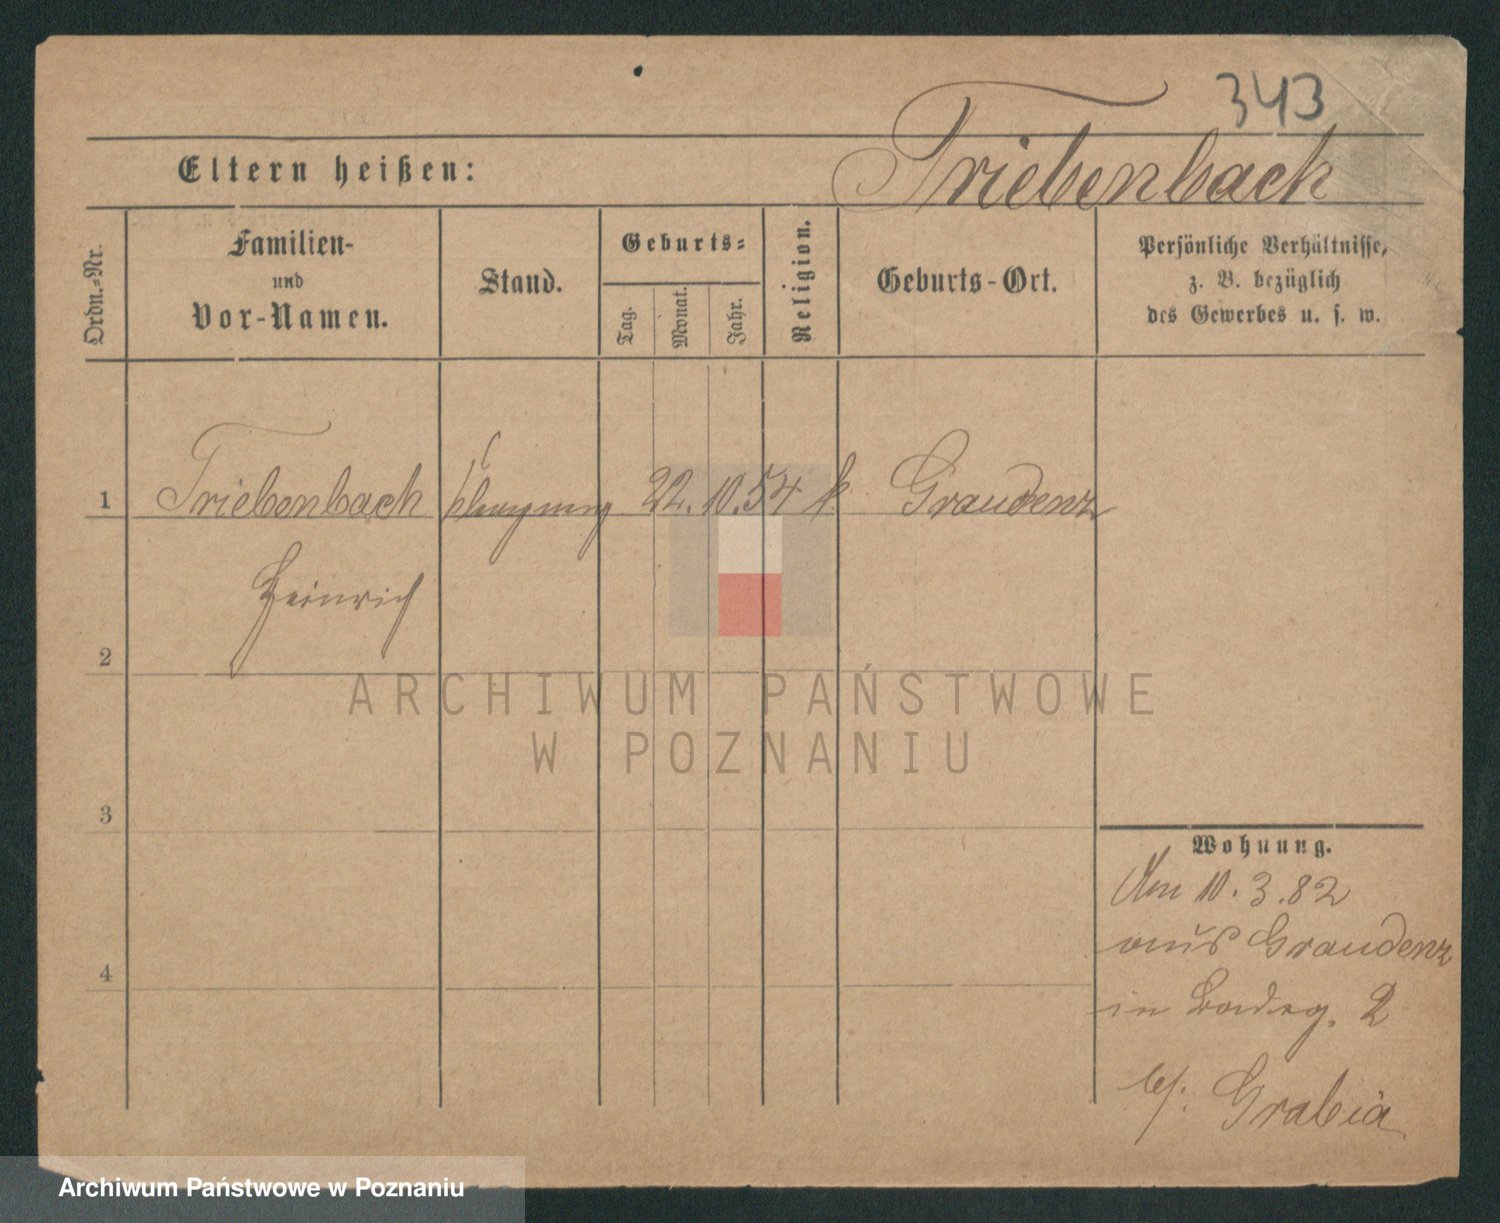 343
Eltern heißen: Triebenbach
Ordn.-Nr.
Familien-
und
Vor-Namen.
Stand.
Geburts-
Tag.
Monat.
Jahr.
Religion.
Geburts-Ort.
Persönliche Verhältnisse,
z. B. bezüglich
des Gewerbes u. s. w.
1 Triebenbach 22. 10. 54 k. Graudenz
Heinrich
2
ARCHIWUM PAŃSTWOWE
W POZNANIU
3
Wohnung.
Am 10.3.82
aus Graudenz
in 2
4
bei Grabia
Archiwum Państwowe w Poznaniu